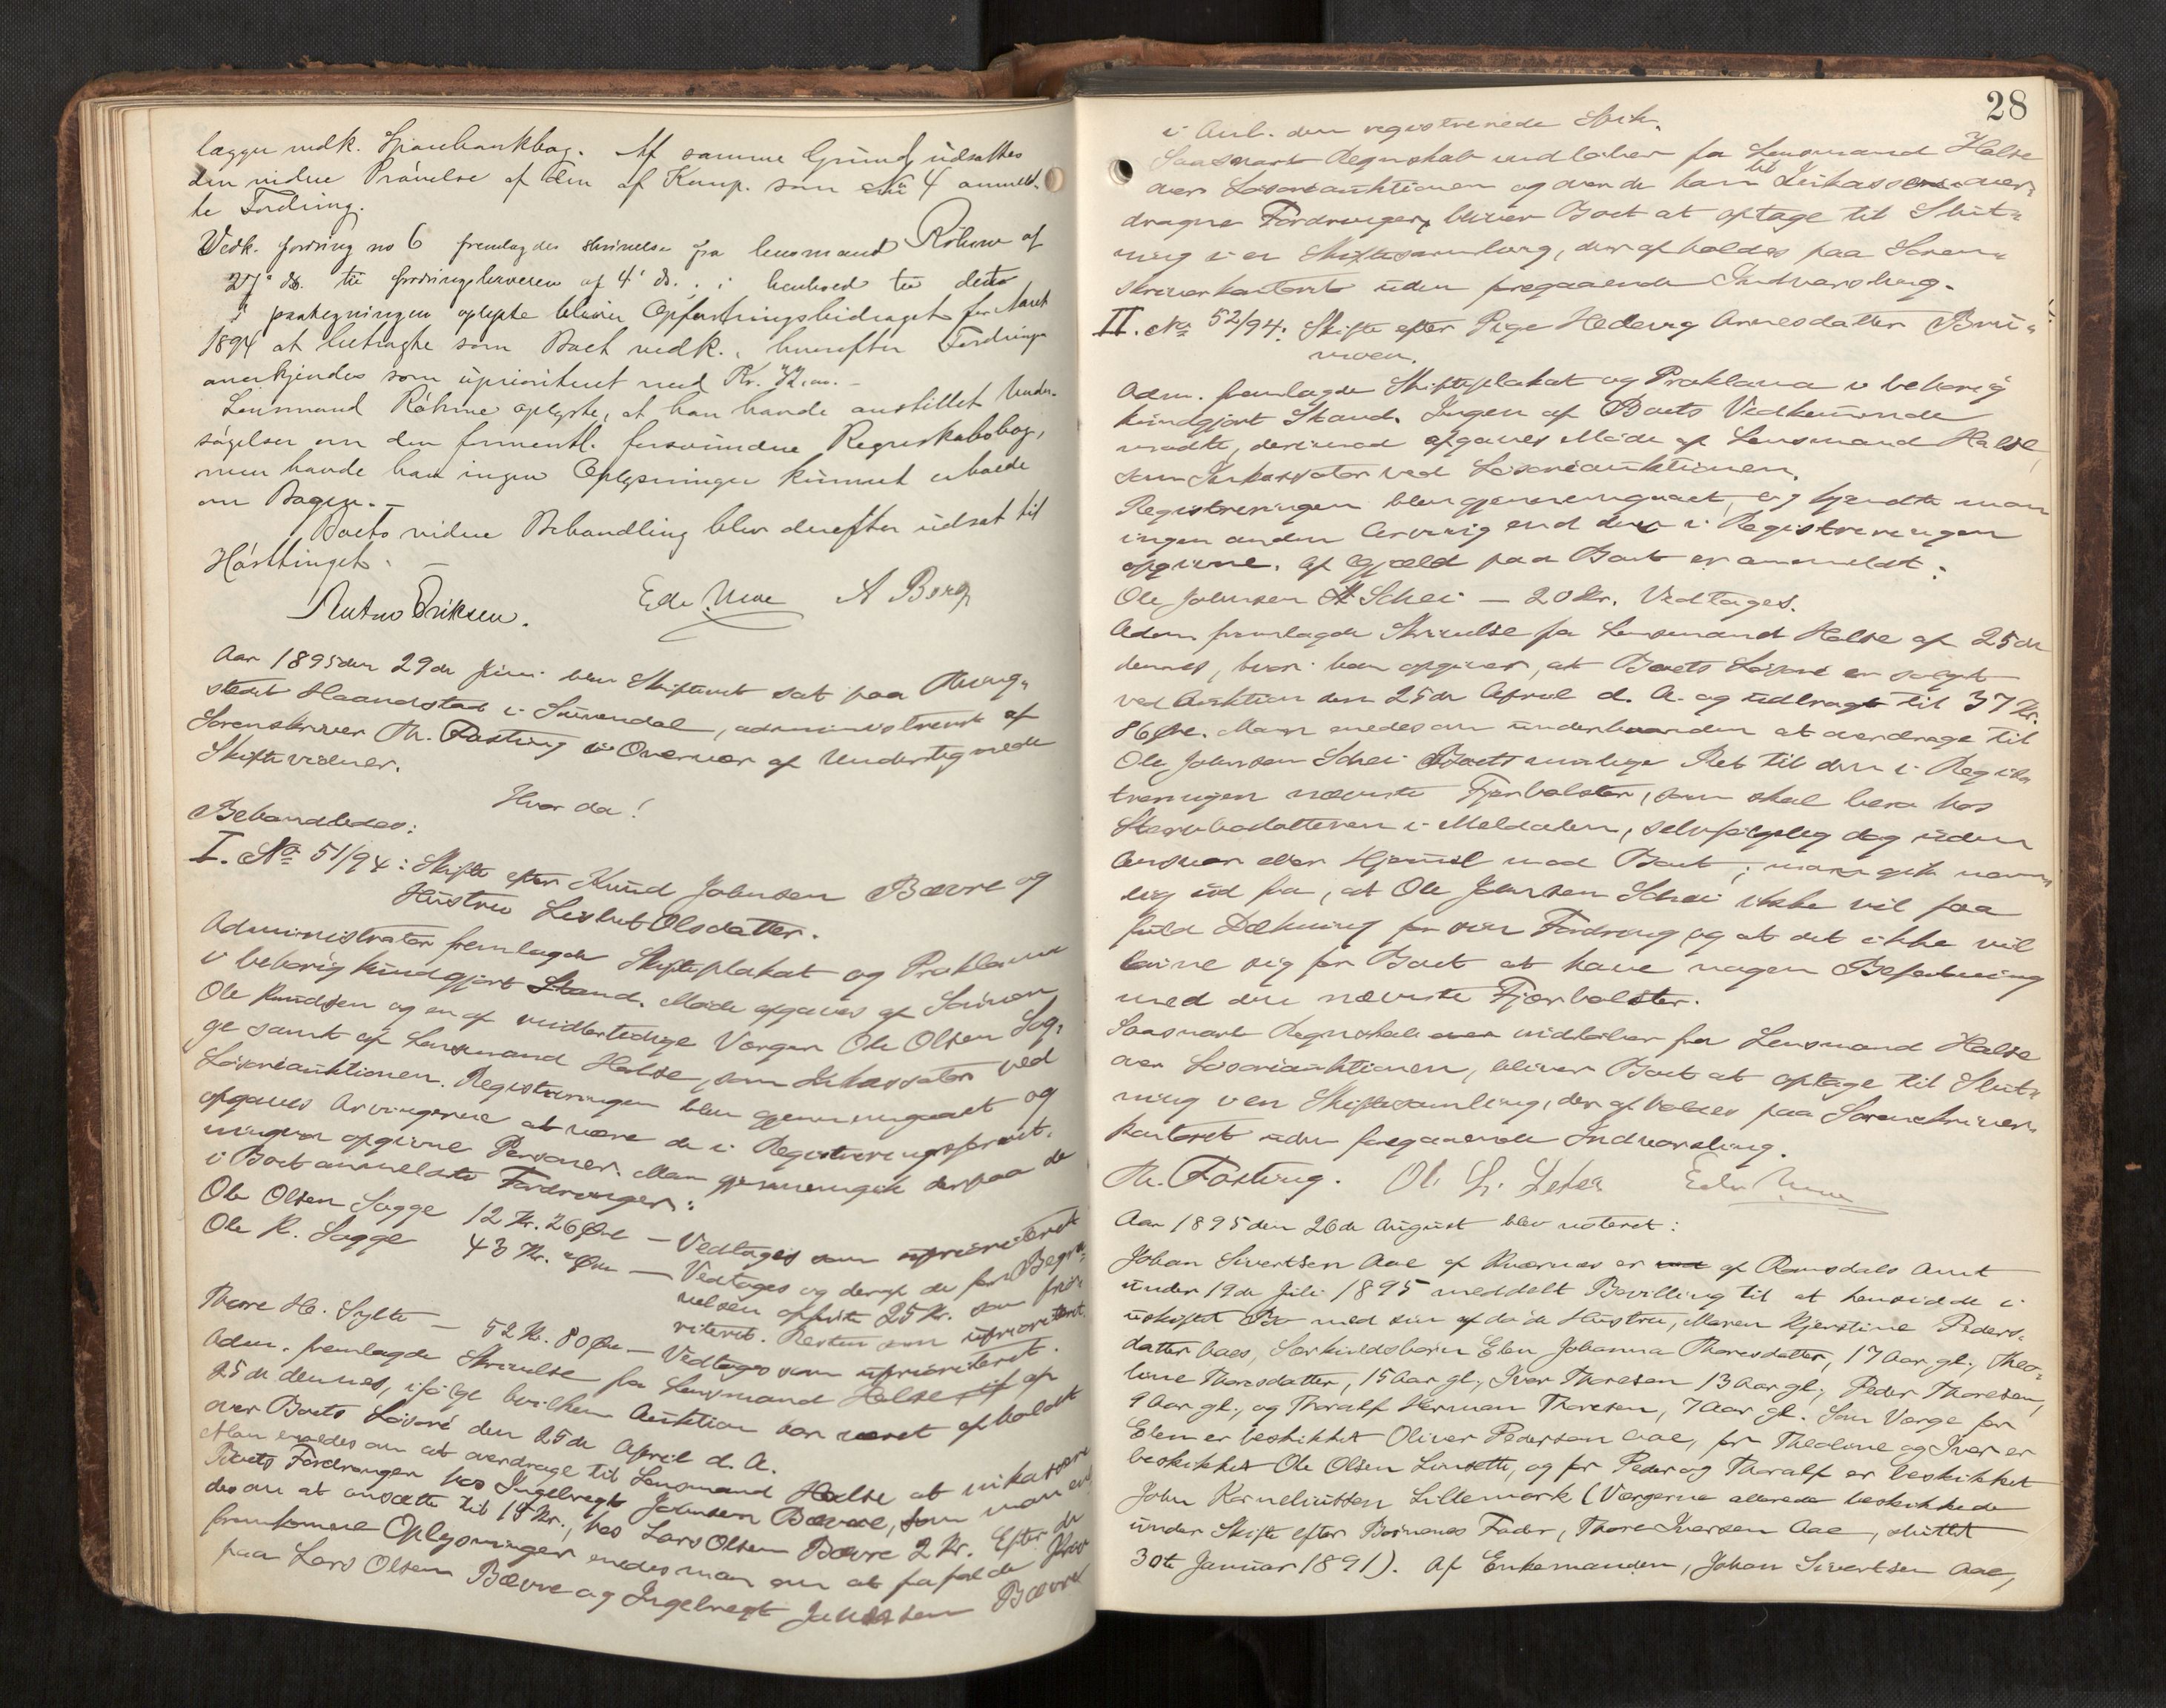 lægger vedk. Sparebankbog. Af samme Grund udsattes
den videre Prøvelse af den af Komp. som No 4 anmeld-
te Fordring.
Vedk. fordring no 6 fremlagdes skrivelse fra lensmand Röhme af
27de ds. til fordringshaveren af 4de ds.; i henhold til dette
i paategningen oplyste bliver Opfostringsbidraget for Aaret
1894 at betragte som Boet vedk., hvorefter Fordringen
anerkjendes som uprioriteret med Kr. 72.00.-
Lensmand Röhme oplyste, at han havde anstillet Under-
søgelser om den formentl. forsvundne Regnskabsbog,
men havde han ingen Oplysninger kunnet erholde
om Bogen.-
Boets videre Behandling blev derefter udsat til
Høstthinget.-
Anton Eriksen. Edv Moe A Berg
Aar 1895 den 29de Juni blev Skifteret sat paa Thing-
stedet Haandstad i Surendal, administreret af
Sorenskriver Th. Fasting i Overvær af Undertegnede
Skiftevidner.
Hvor da!
Behandledes:
I. No 51/94: Skifte efter Knud Johnsen Bævre og
Hustru Lisbet Olsdatter.
Administrator fremlagde Skifteplakat og Proklama
i behørig kundgjort Stand. Møde afgaves af Sønnen
Ole Knudsen og en af midlertidige Værger Ole Olsen Sog-
ge samt af Lensmand Halse, som Inkassator ved
Løsøreauktionen. Registreringen blev gjennemgaaet og
opgaves Arvingerne at være de i Registreringsforret-
ningen opgivne Personer. Man gjennemgik derpaa de
i Boet anmeldte Fordringer:
Ole Olsen Sogge 12 Kr. 26 Øre — Vedtages som uprioriteret
Ole K. Sogge 43 Kr. " Øre — Vedtages og deraf de for Begra-
velsen opførte 25 Kr. som prio-
riteret. Resten som uprioriteret.
Thore H. Sylte — 52 Kr. 80 Øre — Vedtages som uprioriteret.
Adm. fremlagde Skrivelse fra Lensmand Halse af
25de dennes, ifølge hvilken Auktion har været afholdt
over Boets Løsøre den 25de April d. A.
Man enedes om at overdrage til Lensmand Halse at inkassere
Boets Fordringer hos Ingebregt Johnsen Bævre, som man ene-
des om at ansætte til 15 Kr., hos Lars Olsen Bævre 2 Kr. Efter de
fremkomne Oplysninger enedes man om at frafalde Krav
paa Lars Olsen Bævre og Ingebregt Johnsen Bævre
28
i Anl. den registrerede
Saasnart Regnskab indløber fra Lensmand Halse
over Løsøreauktionen og over de ham til Inkasso over-
dragne Fordringer, bliver Boet at optage til Slut-
ning i en Skiftesamling, der afholdes paa Soren-
skriverkontoret uden foregaaende Indvarsling.
II. No 52/94: Skifte efter Pige Hedevig Arnesdatter Bru-
moen.
Adm. fremlagde Skifteplakat og Proklama i behørig
kundgjort Stand. Ingen af Boets Vedkommende
mødte, derimod afgaves Møde af Lensmand Halse
som Inkassator ved Løsøreauktionen.
Registreringen blev gjennemgaaet, og kjendte man
ingen anden Arving end den i Registreringen
opgivne. Af Gjæld paa Boet er anmeldt:
Ole Johnsen Schei — 20 Kr. Vedtages.
Adm. fremlagde Skrivelse fra Lensmand Halse af 25de
dennes, hvori han opgiver, at Boets Løsøre er solgt
ved Auktion den 25de April d. A. og udbragt til 37 Kr.
86 Øre. Man enedes om underhaanden at overdrage til
Ole Johnsen Schei Boets mulige Ret til den i Regis-
treringen nævnte Fjærbolster, som skal være hos
Stervbodatteren i Meldalen, selvfølgelig dog uden
Ansvar eller Hjemmel mod Boet; man gik nem-
lig ud fra, at Ole Johnsen Schei ikke vil faa
fuld Dækning for sin Fordring og at det ikke vil
lønne sig for Boet at have nogen Befatning
med den nævnte Fjærbolster.
Saasnart Regnskab indløber fra Lensmand Halse
over Løsøreauktionen, bliver Boet at optage til Slut-
ning i en Skiftesamling, der afholdes paa Sorenskriver-
kontoret uden foregaaende Indvarsling.
Th. Fasting. Ol. L. Edv Moe
Aar 1895 den 26de August blev noteret:
Johan Sivertsen Aae af Kværnes er af Romsdals Amt
under 19de Juli 1895 meddelt Bevilling til at hensidde i
uskiftet Bo med sin afdøde Hustru, Maren Kjerstine Peders-
datter Aaes, Særkuldsbørn Elen Johanna Thoresdatter, 17 Aar gl., Theo-
line Thoresdatter, 15 Aar gl., Iver Thoresen 13 Aar gl., Peder Thoresen,
9 Aar gl., og Thoralf Herman Thoresen, 7 Aar gl. Som Værge for
Elen er beskikket Oliver Pedersen Aae, for Theoline og Iver er
beskikket Ole Olsen Linseth, og for Peder og Thoralf er beskikket
John Korneliussen Lillemork (Værgerne allerede beskikkede
under Skifte efter Børnenes Fader, Thore Iversen Aae, sluttet
30te Januar 1891). Af Enkemanden, Johan Sivertsen Aae,